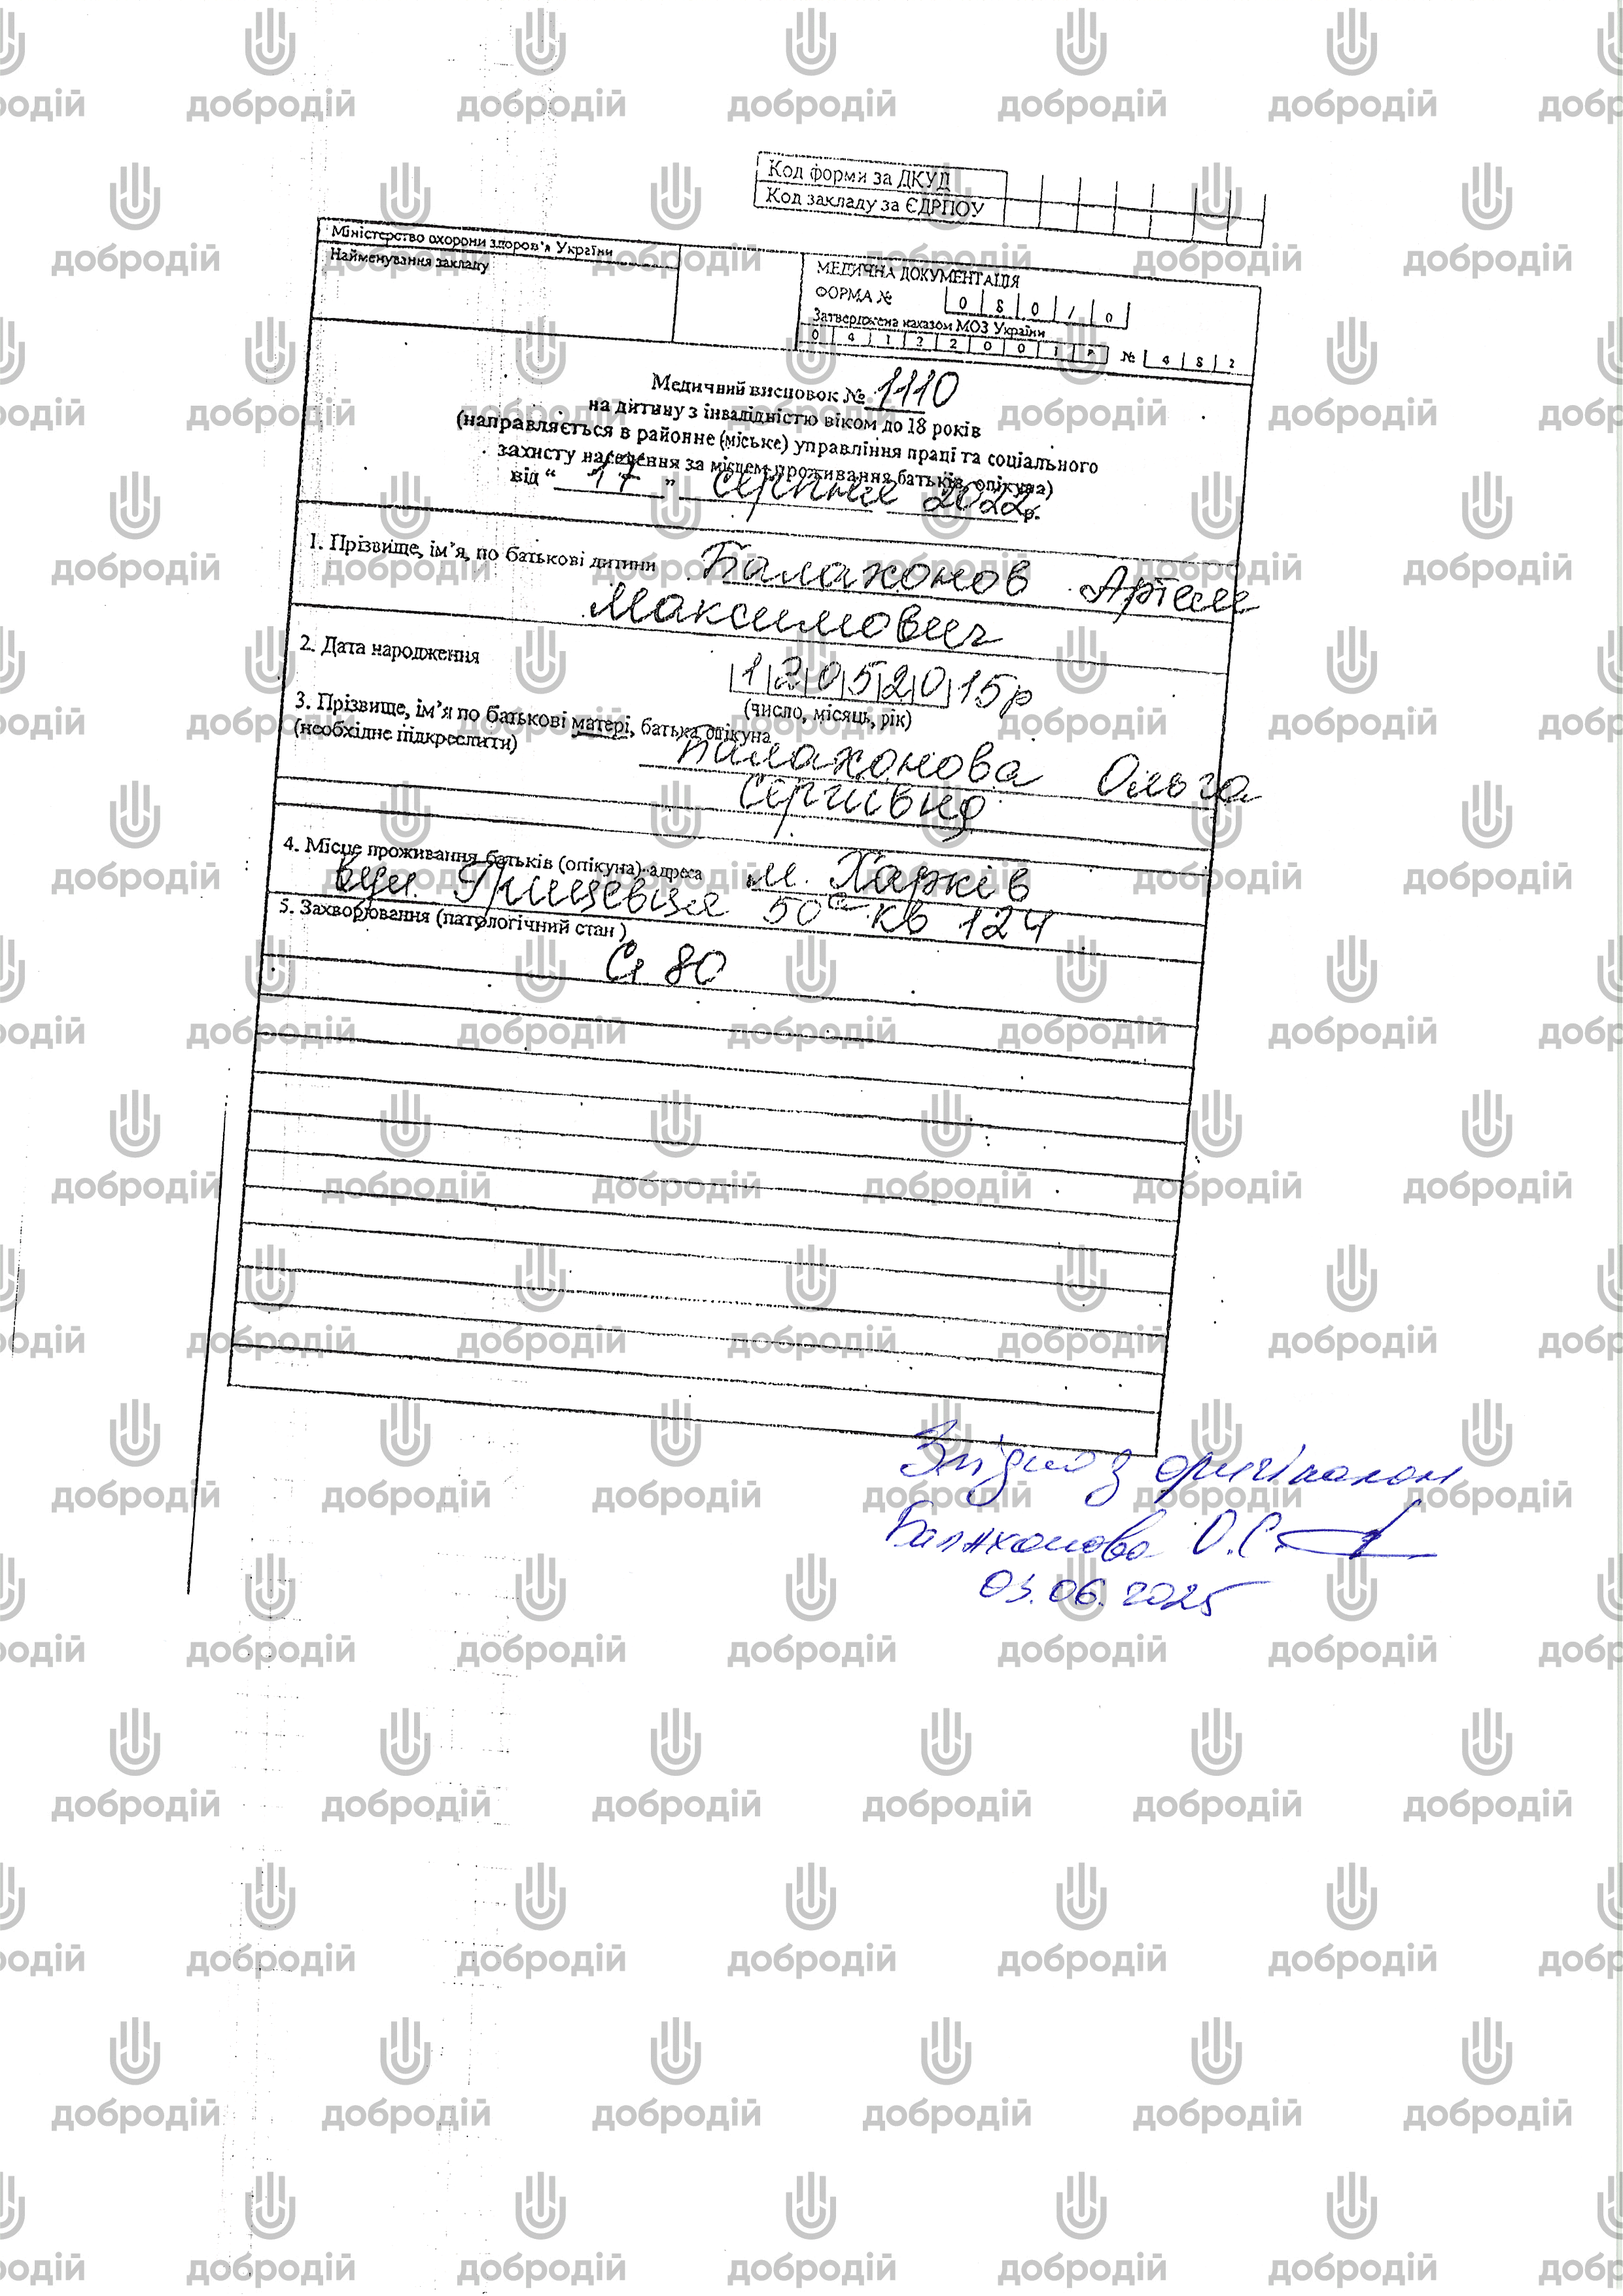 Код форми за ДКУД
Код закладу за ЄДРПОУ
Міністерство охорони здоров'я України
Найменування закладу
МЕДИЧНА ДОКУМЕНТАЦІЯ
ФОРМА № 0 8 0 / 0
Затверджена наказом МОЗ України
0 4 1 2 2 0 0 1 р № 4 8 2
Медичний висновок № 1110
на дитину з інвалідністю віком до 18 років
(направляється в районне (міське) управління праці та соціального
захисту населення за місцем проживання батьків, опікуна)
від “ 17 ” серпня 2022 р.
1. Прізвище, ім'я, по батькові дитини Балахонов Артем
Максимович
2. Дата народження 12052015р
(число, місяць, рік)
3. Прізвище, ім'я по батькові матері, батька опікуна
(необхідне підкреслити) Балахонова Ольга
Сергіївна
4. Місце проживання батьків (опікуна) адреса м. Харків
вул. 50а кв 124
5. Захворювання (патологічний стан)
G 80
Згідно з оригіналом
Балахонова О.С.
03.06.2025
добродій